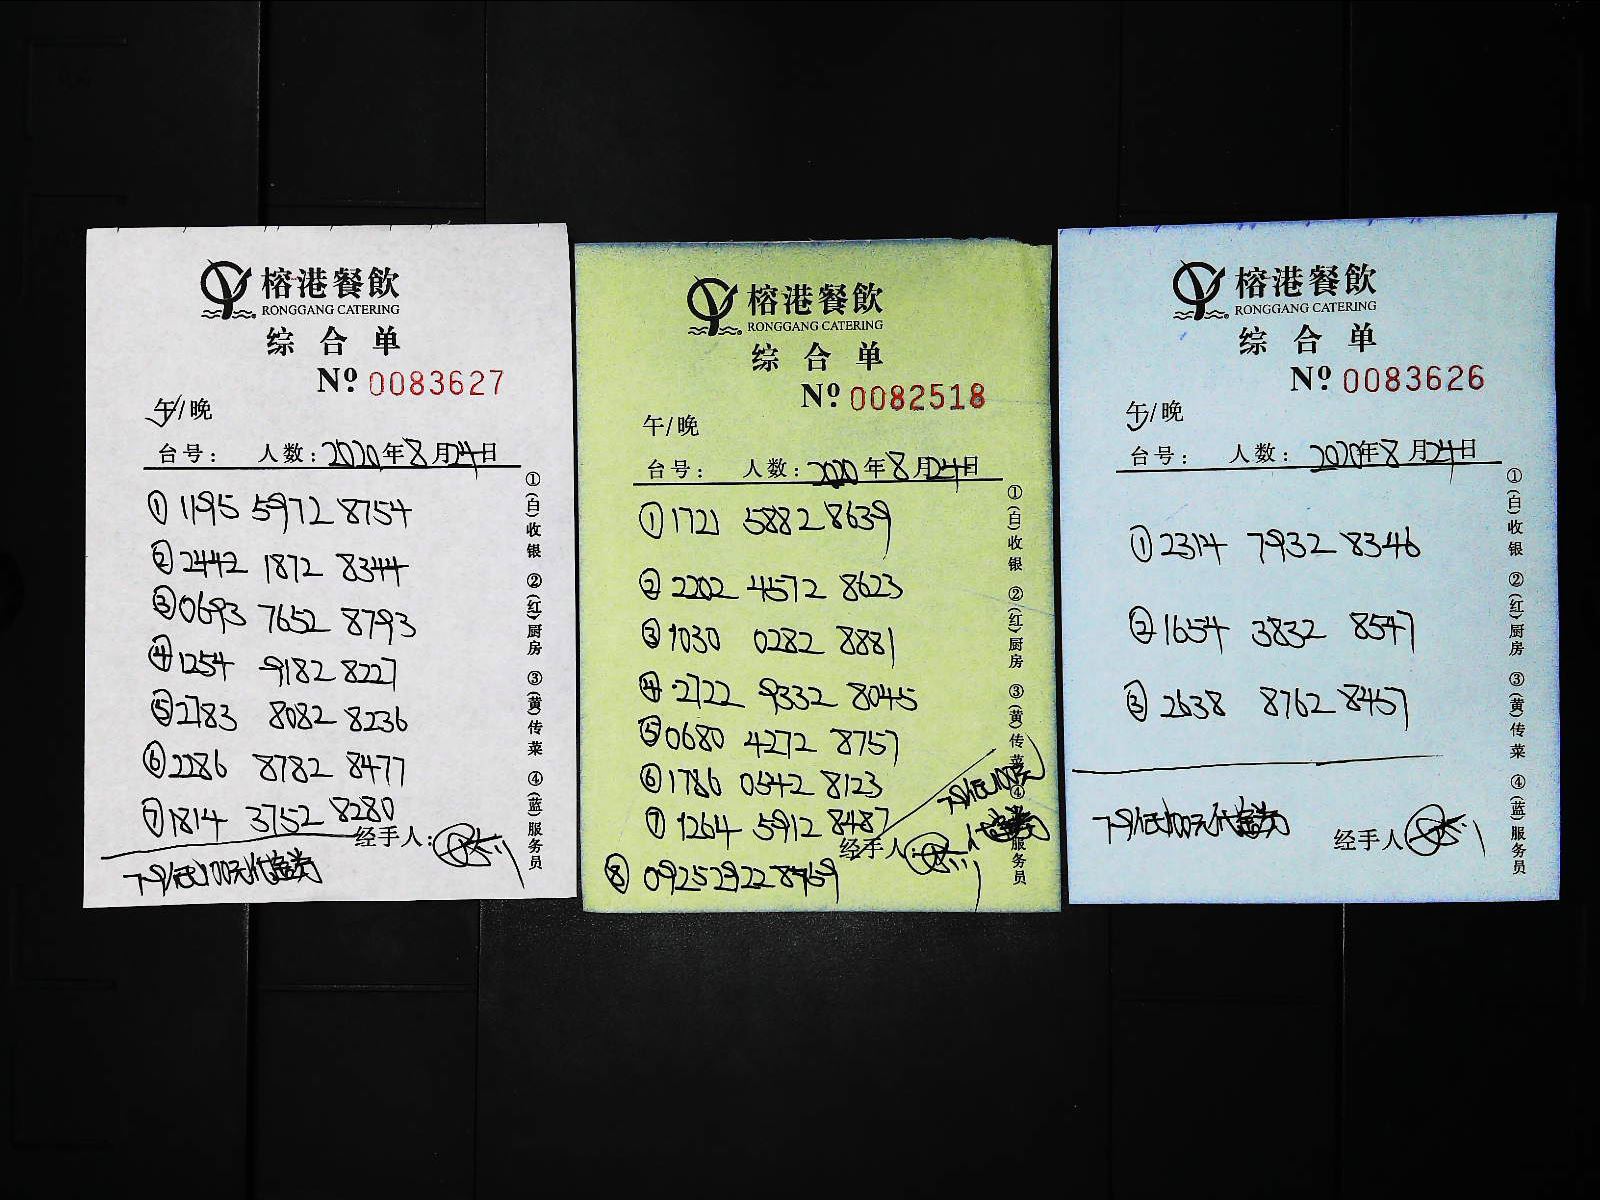 榕港餐飲
RONGGANG CATERING
综合单
Nº 0083627
午/晚
台号： 人数：2020年8月24日
① 1195 5972 8754
② 2442 1872 8344
③ 0693 7652 8793
④ 1254 9182 8227
⑤ 2783 8082 8236
⑥ 2286 8782 8477
⑦ 1814 3752 8280
经手人：
100元代金券
①(白)收银 ②(红)厨房 ③(黄)传菜 ④(蓝)服务员
榕港餐飲
RONGGANG CATERING
综合单
Nº 0082518
午/晚
台号： 人数：2020年8月24日
① 1721 5882 8639
② 2202 4572 8623
③ 1030 0282 8881
④ 2722 9332 8045
⑤ 0680 4272 8757
⑥ 1786 0542 8123
⑦ 1264 5912 8487
经手人
⑧ 0925 2922 8759
100元
①(白)收银 ②(红)厨房 ③(黄)传菜 ④ 服务员
榕港餐飲
RONGGANG CATERING
综合单
Nº 0083626
午/晚
台号： 人数：2020年8月24日
① 2314 7932 8346
② 1654 3832 8547
③ 2638 8762 8457
100元代金券
经手人
①(白)收银 ②(红)厨房 ③(黄)传菜 ④(蓝)服务员